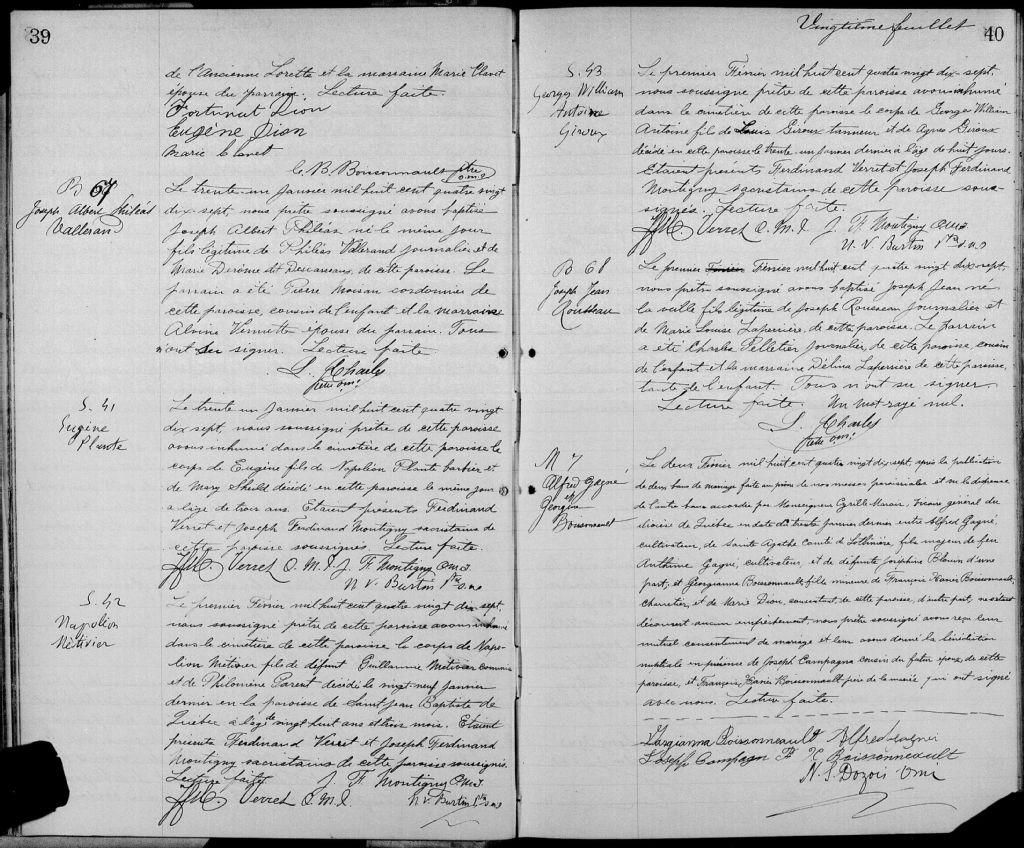 39
de l'Ancienne Lorette et la marraine Marie Clavet
épouse du parrain. Lecture faite.
Fortunat Dion
Eugène Dion
Marie Clavet
C. B. Boissonnault ptre
o.m.i.
B 67
Joseph Albert Philéas
Vallerand
Le trente-un Janvier mil huit cent quatre vingt
dix-sept, nous prêtre soussigné avons baptisé
Joseph Albert Philéas né le même jour
fils légitime de Philéas Vallerand journalier et de
Marie Derôme dit Descareaux, de cette paroisse. Le
parrain a été Pierre Moisan cordonnier de
cette paroisse, cousin de l'enfant et la marraine
Alvine Verrette épouse du parrain. Tous
n'ont su signer. Lecture faite
L. Charles
ptre omi
S. 41
Eugène
Plante
Le trente un Janvier mil huit cent quatre vingt
dix sept, nous soussigné prêtre de cette paroisse
avons inhumé dans le cimetière de cette paroisse le
corps de Eugène fils de Napoléon Plante barbier et
de Mary Shield décédé en cette paroisse le même jour
a l'âge de trois ans. Etaient présents Ferdinand
Verret et Joseph Ferdinand Montigny sacristains de
cette paroisse soussignés. Lecture faite.
Verret O. M. I. J. F. Montigny O.M.I.
N. V. Burtin Ptre o.m.i.
S. 42
Napoléon
Métivier
Le premier Février mil huit cent quatre vingt dix sept,
nous soussigné prêtre de cette paroisse avons inhumé
dans le cimetière de cette paroisse le corps de Napo-
léon Métivier fils de défunt Guillaume Métivier commis
et de Philomène Parent décédé le vingt neuf Janvier
dernier en la paroisse de Saint Jean Baptiste de
Québec a l'âge de vingt huit ans et trois mois. Etaient
présents Ferdinand Verret et Joseph Ferdinand
Montigny sacristains de cette paroisse soussignés.
Lecture faite J. F. Montigny O.M.I.
Verret O. M. I. N. V. Burtin Ptre o.m.i.
Vingtième feuillet
40
S. 43
Georges William
Antoine
Giroux
Le premier Février mil huit cent quatre vingt dix-sept,
nous soussigné prêtre de cette paroisse avons inhumé
dans le cimetière de cette paroisse le corps de Georges William
Antoine fils de Louis Giroux tanneur et de Agnes Giroux
décédé en cette paroisse le trente un janvier dernier a l'âge de huit jours.
Etaient présents Ferdinand Verret et Joseph Ferdinand
Montigny sacristains de cette paroisse sous-
signés. Lecture faite.
Verret O. M. I. J. F. Montigny O.M.I.
N. V. Burtin Ptre o.m.i.
B 68
Joseph Jean
Rousseau
Le premier Février mil huit cent quatre vingt dix sept,
nous prêtre soussigné avons baptisé Joseph Jean né
la veille fils légitime de Joseph Rousseau journalier et
de Marie Louise Laperrière, de cette paroisse. Le parrain
a été Charles Pelletier journalier, de cette paroisse, cousin
de l'enfant et la marraine Délina Laperrière de cette paroisse,
tante de l'enfant. Tous n'ont su signer
Lecture faite. Un mot rayé nul.
L. Charles
ptre omi
M 7
Alfred Gagné
et
Georgina
Boissonnault
Le deux Février mil huit cent quatre vingt dix-sept, après la publication
de deux bans de mariage faite au prône de nos messes paroissiales et vu la dispense
de l'autre ban accordée par Monseigneur Cyrille Marois, Vicaire général du
diocèse de Québec en date du trente janvier dernier entre Alfred Gagné,
cultivateur, de Sainte Agathe Comté de Lotbinière, fils majeur de feu
Anthime Gagné, cultivateur, et de défunte Joséphine Blouin d'une
part; et Georgianna Boissonnault, fille mineure de François Xavier Boissonnault,
charretier, et de Marie Dion, consentant, de cette paroisse, d'autre part, ne s'étant
découvert aucun empêchement, nous prêtre soussigné avons reçu leur
mutuel consentement de mariage et leur avons donné la bénédiction
nuptiale en présence de Joseph Campagna cousin du futur époux, de cette
paroisse, et François Xavier Boissonnault, père de la mariée qui ont signé
avec nous. Lecture faite.
Gorgianna Boissonneault Alfred Gagner
Joseph Campagna F X Boissonneault
N. S. Dozois omi